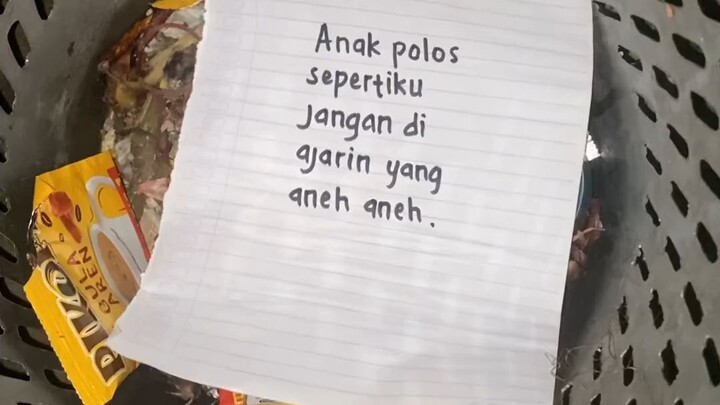 Anak polos
sepertiku
Jangan di
ajarin yang
aneh aneh.
GULA
AREN